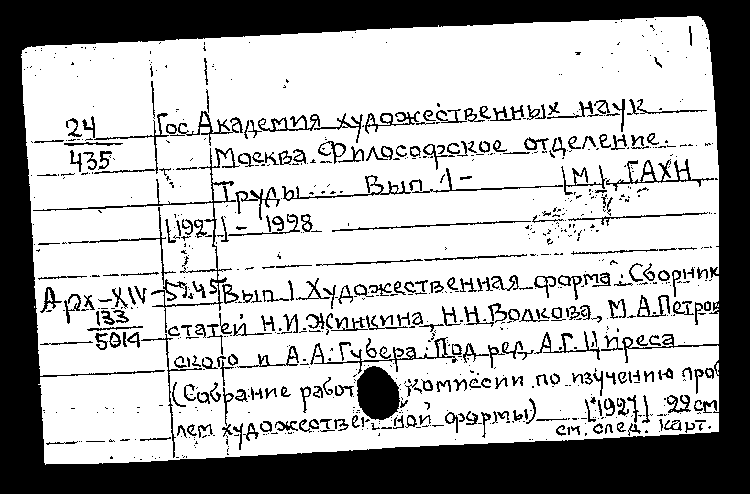 1
24 Гос. Академия художественных наук.
435 Москва. Философское отделение.
Труды.... Вып. 1- [М], ГАХН,
[1927] - 1928
Арх-XIV- Вып 1 Художественная форма: Сборник
133 статей Н.И.Жинкина, Н.Н.Волкова, М.А.Петров
5014 ского и А.А.Губера. Под ред. А.Г.Циреса
(Собрание работ комиссии по изучению проб
лем художествен ной формы) [1927] 22 см
см. след. карт.